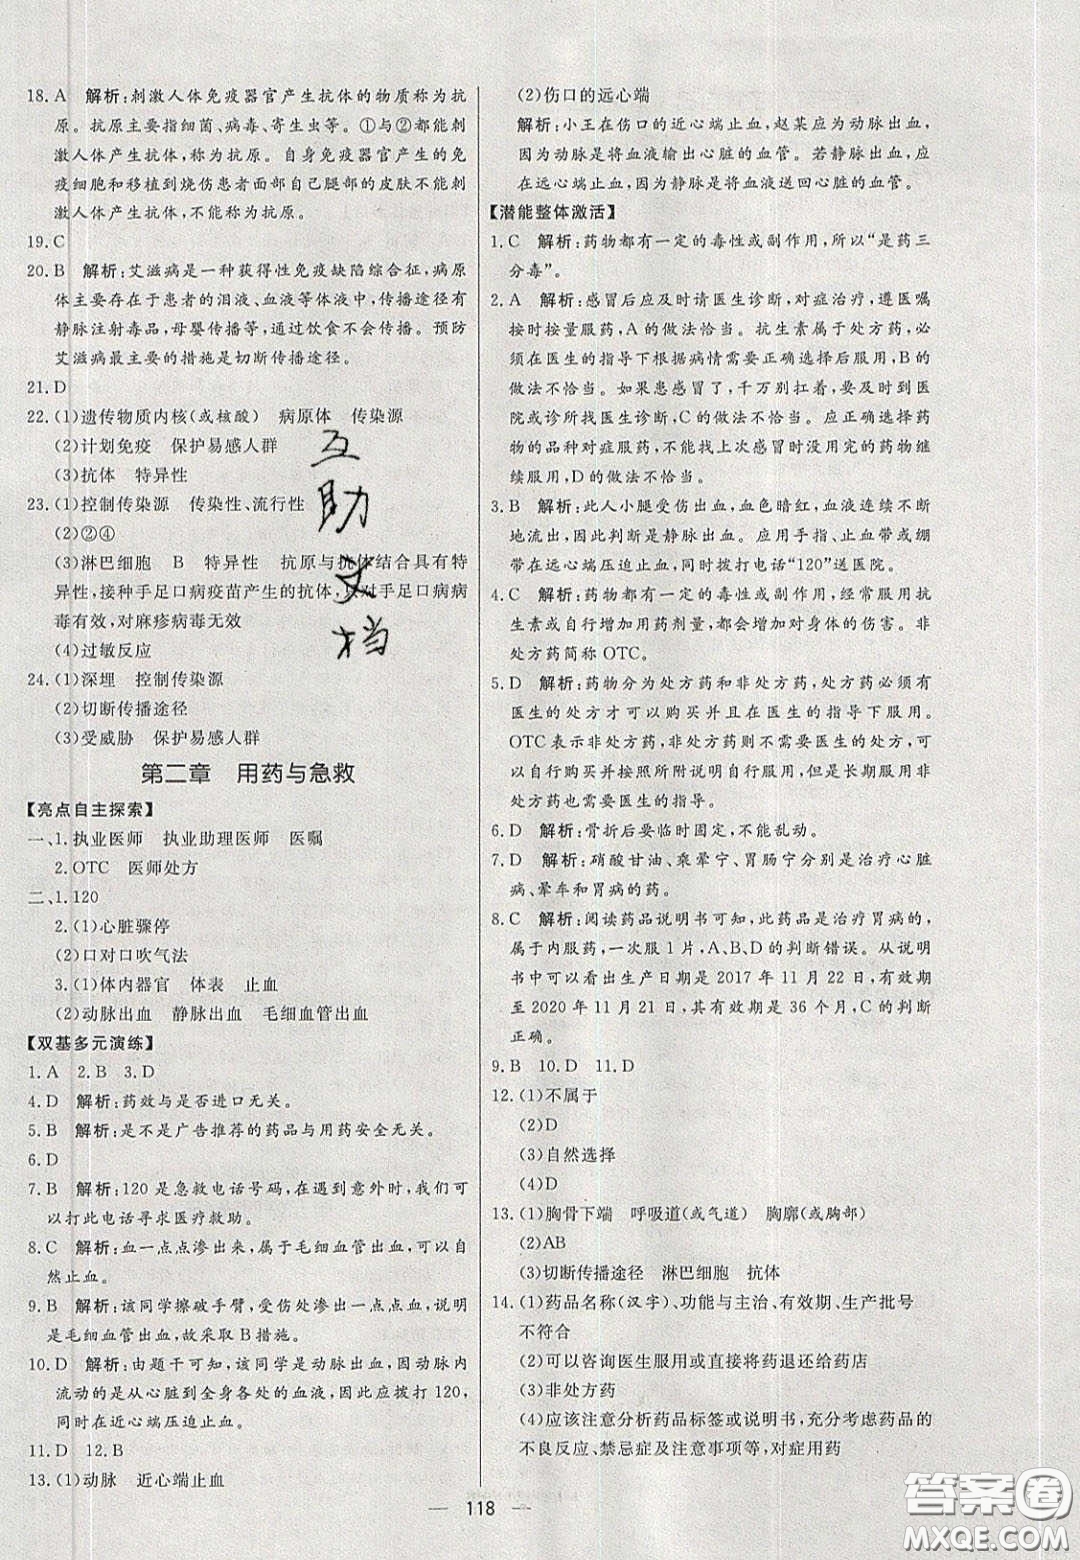 18. A　解析:刺激人体免疫器官产生抗体的物质称为抗
原。抗原主要指细菌、病毒、寄生虫等。①与②都能刺
激人体产生抗体,称为抗原。自身免疫器官产生的免
疫细胞和移植到烧伤患者面部自己腿部的皮肤不能刺
激人体产生抗体,不能称为抗原。
19. C
20. B　解析:艾滋病是一种获得性免疫缺陷综合征,病原
体主要存在于患者的泪液、血液等体液中,传播途径有
静脉注射毒品,母婴传播等,通过饮食不会传播。预防
艾滋病最主要的措施是切断传播途径。
21. D
22. (1)遗传物质内核(或核酸)　病原体　传染源
(2)计划免疫　保护易感人群
(3)抗体　特异性
23. (1)控制传染源　传染性、流行性
(2)②④
(3)淋巴细胞　B　特异性　抗原与抗体结合具有特
异性,接种手足口病疫苗产生的抗体,只对手足口病病
毒有效,对麻疹病毒无效
(4)过敏反应
24. (1)深埋　控制传染源
(2)切断传播途径
(3)受威胁　保护易感人群
第二章　用药与急救
【亮点自主探索】
一、1. 执业医师　执业助理医师　医嘱
2. OTC　医师处方
二、1. 120
2. (1)心脏骤停
(2)口对口吹气法
3. (1)体内器官　体表　止血
(2)动脉出血　静脉出血　毛细血管出血
【双基多元演练】
1. A　2. B　3. D
4. D　解析:药效与是否进口无关。
5. B　解析:是不是广告推荐的药品与用药安全无关。
6. D
7. B　解析:120是急救电话号码,在遇到意外时,我们可
以打此电话寻求医疗救助。
8. C　解析:血一点点渗出来,属于毛细血管出血,可以自
然止血。
9. B　解析:该同学擦破手臂,受伤处渗出一点点血,说明
是毛细血管出血,故采取B措施。
10. D　解析:由题干可知,该同学是动脉出血,因动脉内
流动的是从心脏到全身各处的血液,因此应拨打120,
同时在近心端压迫止血。
11. D　12. B
13. (1)动脉　近心端止血
(2)伤口的远心端
解析:小王在伤口的近心端止血,赵某应为动脉出血,
因为动脉是将血液输出心脏的血管。若静脉出血,应
在远心端止血,因为静脉是将血液送回心脏的血管。
【潜能整体激活】
1. C　解析:药物都有一定的毒性或副作用,所以“是药三
分毒”。
2. A　解析:感冒后应及时请医生诊断,对症治疗,遵医嘱
按时按量服药,A的做法恰当。抗生素属于处方药,必
须在医生的指导下根据病情需要正确选择后服用,B的
做法不恰当。如果患感冒了,千万别扛着,要及时到医
院或诊所找医生诊断,C的做法不恰当。应正确选择药
物的品种对症服药,不能找上次感冒时没用完的药物继
续服用,D的做法不恰当。
3. B　解析:此人小腿受伤出血,血色暗红,血液连续不断
地流出,因此判断是静脉出血。应用手指、止血带或绷
带在远心端压迫止血,同时拨打电话“120”送医院。
4. C　解析:药物都有一定的毒性或副作用,经常服用抗
生素或自行增加用药剂量,都会增加对身体的伤害。非
处方药简称OTC。
5. D　解析:药物分为处方药和非处方药,处方药必须有
医生的处方才可以购买并且在医生的指导下服用。
OTC表示非处方药,非处方药则不需要医生的处方,可
以自行购买并按照所附说明自行服用。但长期服用非
处方药也需要医生的指导。
6. D　解析:骨折后要临时固定,不能乱动。
7. D　解析:硝酸甘油、乘晕宁、胃肠宁分别是治疗心脏
病、晕车和胃病的药。
8. C　解析:阅读药品说明书可知,此药品是治疗胃病的,
属于内服药,一次服1片,A、B、D的判断错误。从说明
书中可以看出生产日期是2017年11月22日,有效期
至2020年11月21日,其有效期是36个月,C的判断
正确。
9. B　10. D　11. D
12. (1)不属于
(2)D
(3)自然选择
(4)D
13. (1)胸骨下端　呼吸道(或气道)　胸廓(或胸部)
(2)AB
(3)切断传播途径　淋巴细胞　抗体
14. (1)药品名称(汉字)、功能与主治、有效期、生产批号
不符合
(2)可以咨询医生服用或直接将药退还给药店
(3)非处方药
(4)应该注意分析药品标签或说明书,充分考虑药品的
不良反应、禁忌症及注意事项等,对症用药
互
助
文
档
118
答案圈
MXQE.COM